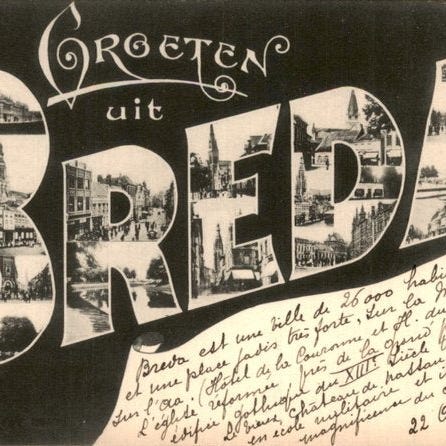 GROETEN
uit
BREDA
Breda est une ville de 26000 habi
et une place jadis très forte, sur la M
sur l'Aa. (Hôtel de la Couronne et H. du
L'église réformée près de la Grand
édifice Gothique du XIIIe Siècle
Le vieux Château de Nassau
en école militaire et
magnificence du
22